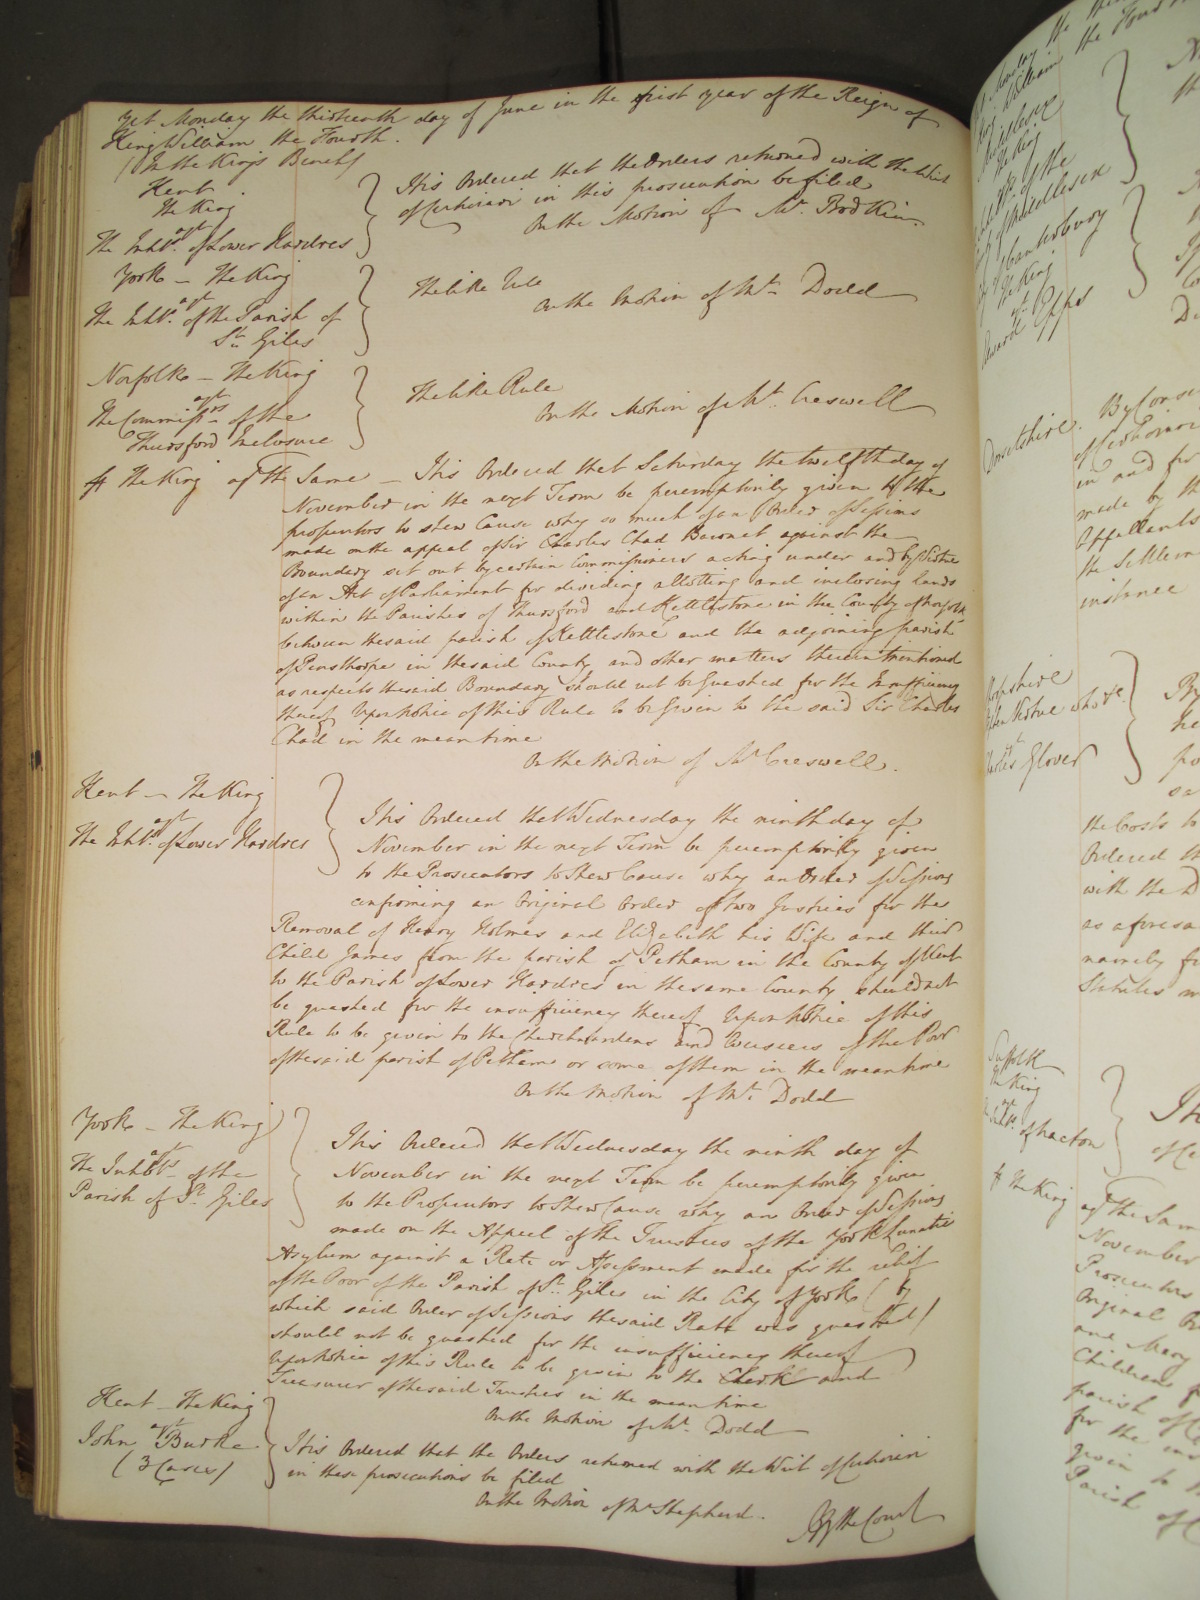 Yet Monday the thirteenth day of June in the first year of the Reign of
King William the Fourth.
(In the King's Bench)
Kent
The King
agt
The Inhbts. of Lower Hardres
It is Ordered that the Orders returned with the Writ
of Certiorari in this prosecution be filed
On the Motion of Mr. Bodkin
York – The King
agt
The Inhbts. of the Parish of
St. Giles
The like Rule
On the Motion of Mr. Dodd
Norfolk – The King
agt
The Commissrs. of the
Thursford Inclosure
The like Rule
On the Motion of Mr. Creswell
The King agt the Same – It is Ordered that Saturday the twelfth day of
November in the next Term be peremptorily given to the
prosecutors to shew Cause why so much of an Order of Sessions
made on the appeal of Sir Charles Chad Baronet against the
Boundary set out by certain Commissioners acting under and by Virtue
of an Act of Parliament for dividing allotting and inclosing lands
within the Parishes of Thursford and Kettlestone in the County of Norfolk
between the said parish of Kettlestone and the adjoining parish
of Pensthorpe in the said County and other matters therein mentioned
as respects the said Boundary should not be quashed for the Insufficiency
thereof Upon Notice of this Rule to be Given to the said Sir Charles
Chad in the mean time
On the Motion of Mr. Creswell.
Kent – The King
agt
The Inhbts. of Lower Hardres
It is Ordered that Wednesday the ninth day of
November in the next Term be peremptorily given
to the Prosecutors to Shew Cause why an Order of Sessions
confirming an Original Order of two Justices for the
Removal of Henry Holmes and Elizabeth his Wife and their
Child James from the parish of Petham in the County of Kent
to the Parish of Lower Hardres in the same County should not
be quashed for the insufficiency thereof Upon Notice of this
Rule to be given to the Churchwardens and Overseers of the Poor
of the said parish of Petham or some of them in the mean time
On the Motion of Mr. Dodd
York – The King
agt
The Inhbts. of the
Parish of St. Giles
It is Ordered that Wednesday the ninth day of
November in the next Term be peremptorily given
to the Prosecutors to Shew Cause why an Order of Sessions
made on the Appeal of the Trustees of the York Lunatic
Asylum against a Rate or Assessment made for the relief
of the Poor of the Parish of St. Giles in the City of York (by
which said Order of Sessions the said Rate was quashed)
should not be quashed for the insufficiency thereof
Upon Notice of this Rule to be given to the Clerk and
Treasurer of the said Trustees in the mean time
On the Motion of Mr. Dodd
Kent – The King
agt
John Burke
(3 Cases)
It is Ordered that the Orders returned with the Writ of Certiorari
in these prosecutions be filed
On the Motion of Mr. Shepherd.
By the Court
Middlesex
The King
of the
of Middlesex
Canterbury
The King
agt
Edward Epps
Dorsetshire. By Conse
of Certiorari
in and for
made by th
Appellants
the Settlem
instance
agt
Charles Glover
the Costs to
Ordered th
with the D
as aforesa
namely fr
Statutes m
Suffolk
The King
agt
of Lacton
The King agt the Sam
November
Prosecutors
Original Or
and Mary
Children f
parish of
for the ins
given to th
Parish of